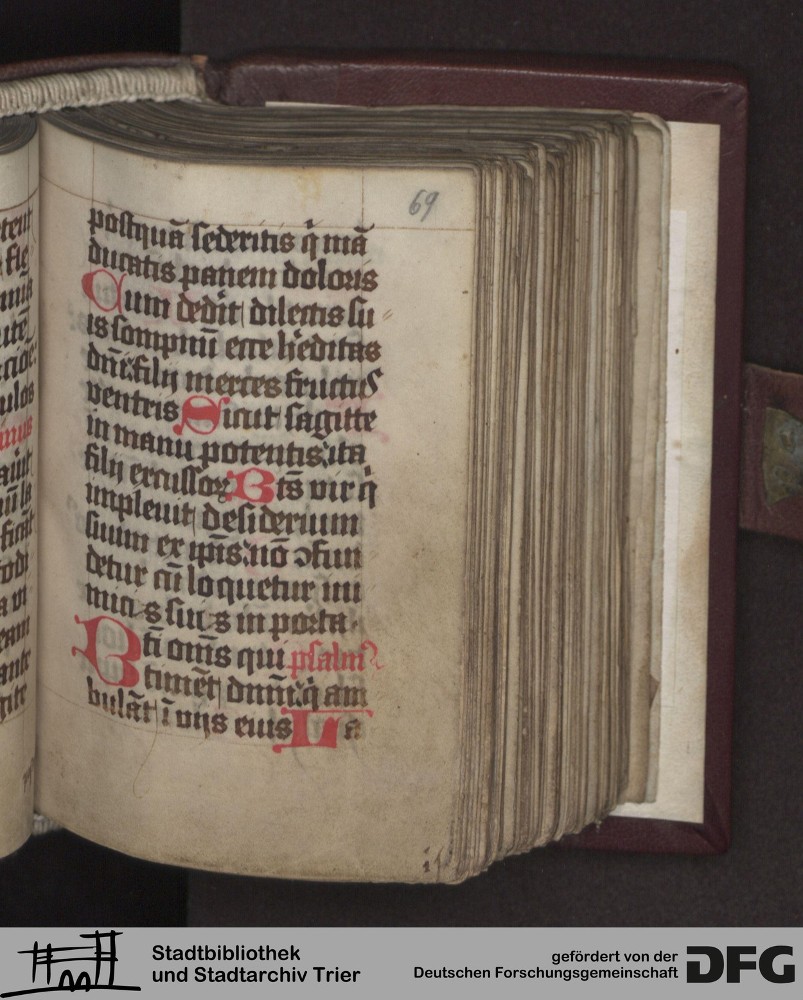 69
postquā sederitis q̇ mā
ducatis panem doloris
Cum dedit dilectis su
is sompnū ecce h'editas
dn̄i: filij merces fructus
ventris Sicut sagitte
in manu potentis: ita
filij excussoꝝ Bt̄s vir q̇
impleuit desiderium
suum ex ip̄is: nō ↄfun
detur cū loquetur ini
micis suis in porta
Bt̄i om̄s qui psalm9
timēt dn̄m: q̇ am
bulāt ī vijs eius La
Stadtbibliothek
und Stadtarchiv Trier
gefördert von der
Deutschen Forschungsgemeinschaft
DFG